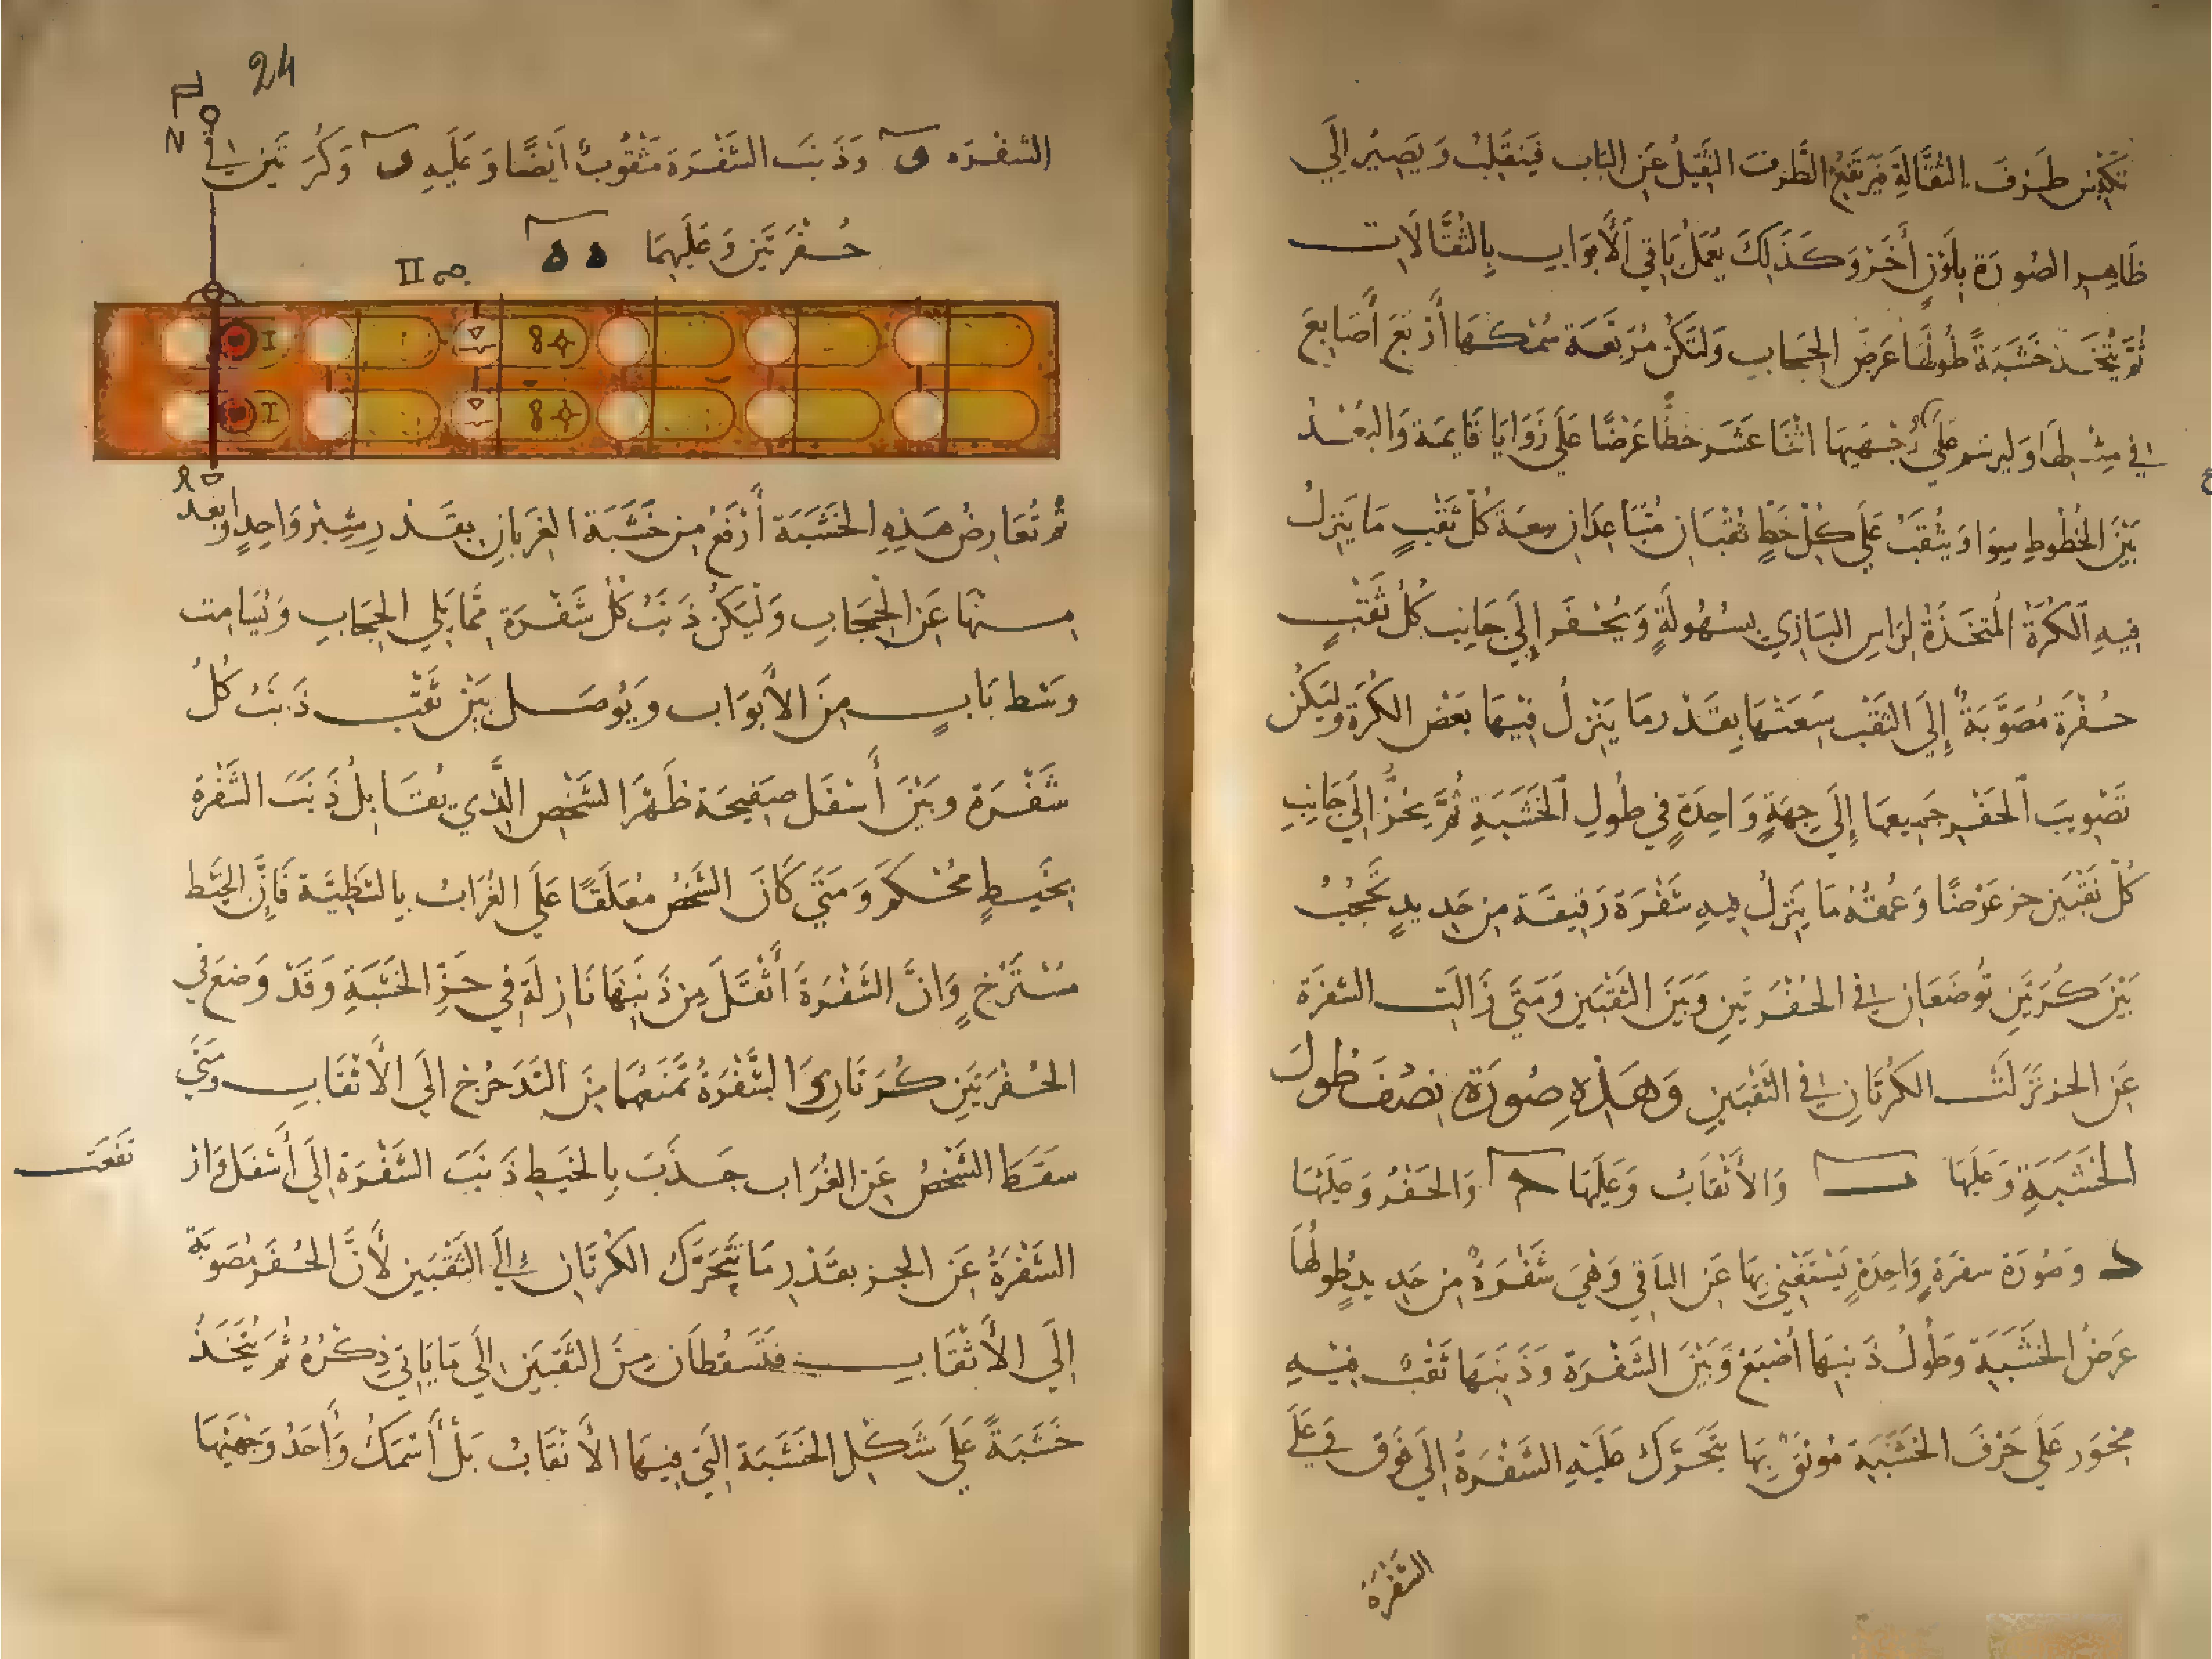 تكبس طرف الثقالة فيرتفع الطرف الثقيل عن الباب فينقلب ويصير إلي
ظاهر الصورة بلون أخر وكذلك يعمل باقي الأبواب بالثقالات
ثم يتخذ خشبة طولها عرض الحجاب ولتكن مربعة سمكها أربع أصابع
في مثلها وليرسم علي وجهيها اثنا عشر خطا عرضا علي زوايا قايمة والبعد
بين الخطوط سوا ويثقب علي كل خط ثقبان متباعدان سعة كل ثقب ما ينزل
فيه الكرة المتخذة لراس البازي بسهولة ويحفر إلي جانب كل ثقب
حفرة مصوبة إلي الثقب سعتها بقدر ما ينزل فيها بعض الكرة وليكن
تصويب الحفر جميعها إلي جهة واحدة في طول الخشبة ثم يحز إلي جانب
كل ثقبين حز عرضا وعمقه ما ينزل فيه شفرة رقيقة من حديد تحجب
بين كرتين توضعان في الحفرتين وبين الثقبين ومتي زالت الشفرة
عن الحز نزلت الكرتان في الثقبين وهذه صورة نصف طول
الخشبة وعليها ب والأثقاب وعليها م والحفر وعليها
د وصورة شفرة واحدة يستغني بها عن الباقي وهي شفرة من حديد طولها
عرض الخشبة وطول ذنبها أصبع وبين الشفرة وذنبها ثقب فيه
محور علي حرف الخشبة موثق بها يتحرك عليه الشفرة إلي فوق وعلي
الشفرة
24
N
الشفره و ذنب الشفرة مثقوب أيضا وعليه وكرتين في
حفرتين وعليهما ه ه
ثم تعارض هذه الخشبة أرفع من خشبة الغربان بقدر شبر واحد وأبعد
منها عن الحجاب وليكن ذنب كل شفرة مما يلي الحجاب ويسامت
وسط باب من الأبواب ويوصل بين ثقب ذنب كل
شفرة وبين أسفل صفيحة ظهر الشخص الذي يقابل ذنب الشفرة
بخيط محكم ومتي كان الشخص معلقا علي الغراب بالشظية فإن الخيط
مسترخ وان الشفرة أثقل من ذنبها نازلة في حز الخشبة وقد وضع في
الحفرتين كرتان والشفرة تمنعهما من التدحرج الي الأثقاب ومتي
سقط الشخص عن الغراب جذب بالخيط ذنب الشفرة إلي أسفل وارتفعت
الشفرة عن الحز بقدر ما يتحرك الكرتان إلي الثقبين لأن الحفر مصوبة
إلي الأثقاب فتسقطان من الثقبين إلي ما ياتي ذكره ثم يتخذ
خشبة علي شكل الخشبة التي فيها الأثقاب بل أسمك وأحد وجهيها